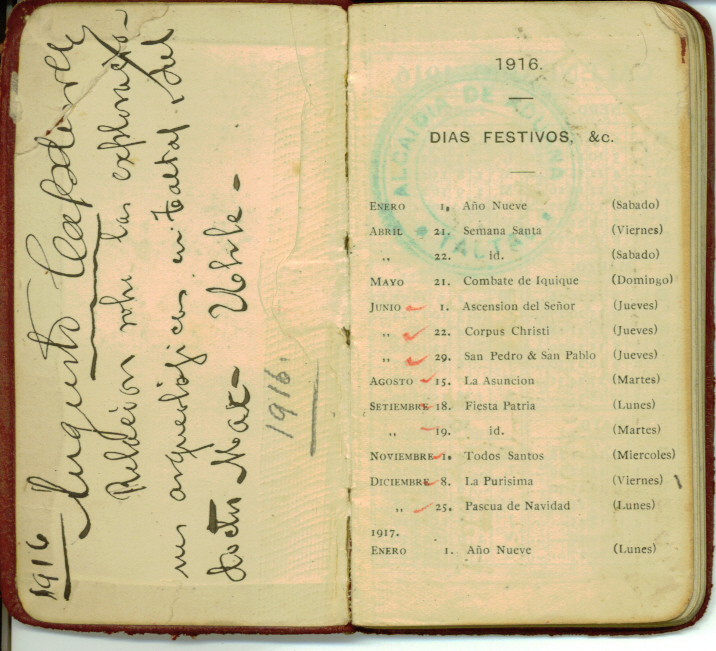 1916
Augusto Capdeville
Relación sobre las exploracio-
nes arqueológicas en Taltal del
Max Uhle -
1916.
1916.
DIAS FESTIVOS, &c.
ENERO 1. Año Nueve (Sabado)
ABRIL 21. Semana Santa (Viernes)
„ 22. id. (Sabado)
MAYO 21. Combate de Iquique (Domingo)
JUNIO 1. Ascension del Señor (Jueves)
„ 22. Corpus Christi (Jueves)
„ 29. San Pedro & San Pablo (Jueves)
AGOSTO 15. La Asuncion (Martes)
SETIEMBRE 18. Fiesta Patria (Lunes)
„ 19. id. (Martes)
NOVIEMBRE 1. Todos Santos (Miercoles)
DICIEMBRE 8. La Purisima (Viernes)
„ 25. Pascua de Navidad (Lunes)
1917.
ENERO 1. Año Nueve (Lunes)
ALCAIDIA DE ADUANA
TALTAL